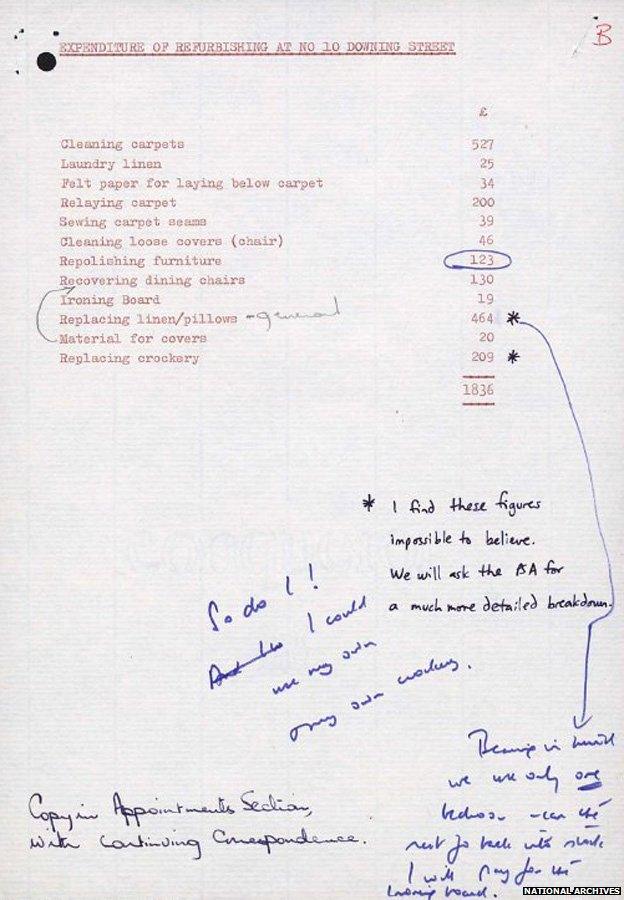 B
EXPENDITURE OF REFURBISHING AT NO 10 DOWNING STREET
£
Cleaning carpets 527
Laundry linen 25
Felt paper for laying below carpet 34
Relaying carpet 200
Sewing carpet seams 39
Cleaning loose covers (chair) 46
Repolishing furniture 123
Recovering dining chairs 130
Ironing Board 19
Replacing linen/pillows - general 464 *
Material for covers 20
Replacing crockery 209 *
1836
* I find these figures
impossible to believe.
We will ask the PSA for
a much more detailed breakdown.
So do I!
I could
use my own
my own crockery.
Bearing in mind
we use only one
bedroom - can the
rest go back into stock
I will pay for the
ironing board.
Copy in Appointments Section,
with continuing Correspondence.
NATIONAL ARCHIVES